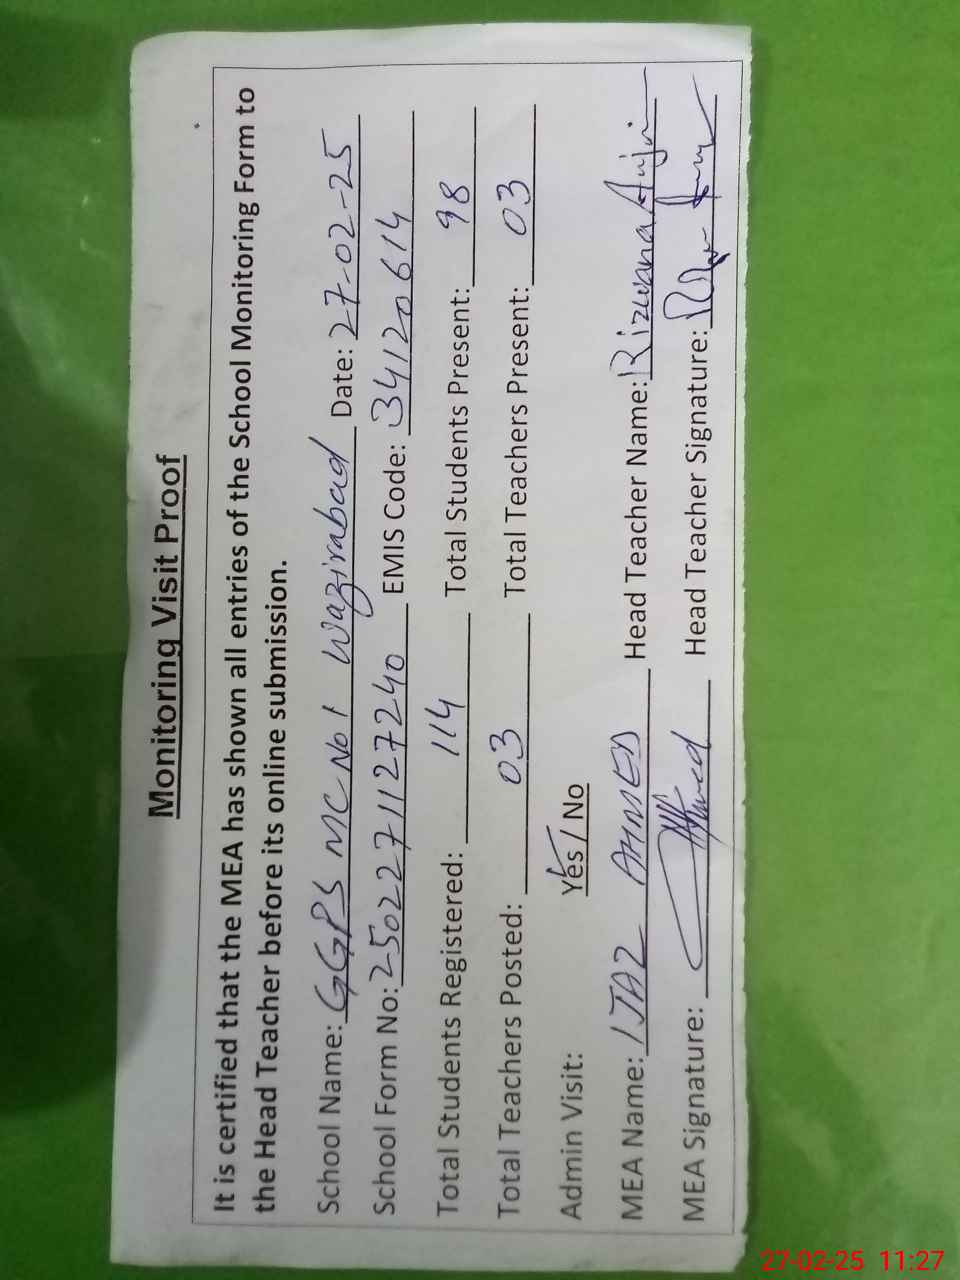 Monitoring Visit Proof
It is certified that the MEA has shown all entries of the School Monitoring Form to
the Head Teacher before its online submission.
School Name: GGPS MC No 1 Wazirabad Date: 27-02-25
School Form No: 250227112724 0 EMIS Code: 34120614
Total Students Registered: 114 Total Students Present: 98
Total Teachers Posted: 03 Total Teachers Present: 03
Admin Visit: Yes / No
MEA Name: IJAZ AHMED Head Teacher Name: Rizwana Anjum
MEA Signature: Ahmed Head Teacher Signature:
27-02-25 11:27